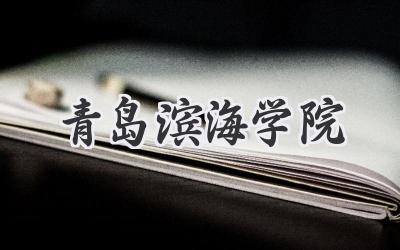 青岛滨海学院